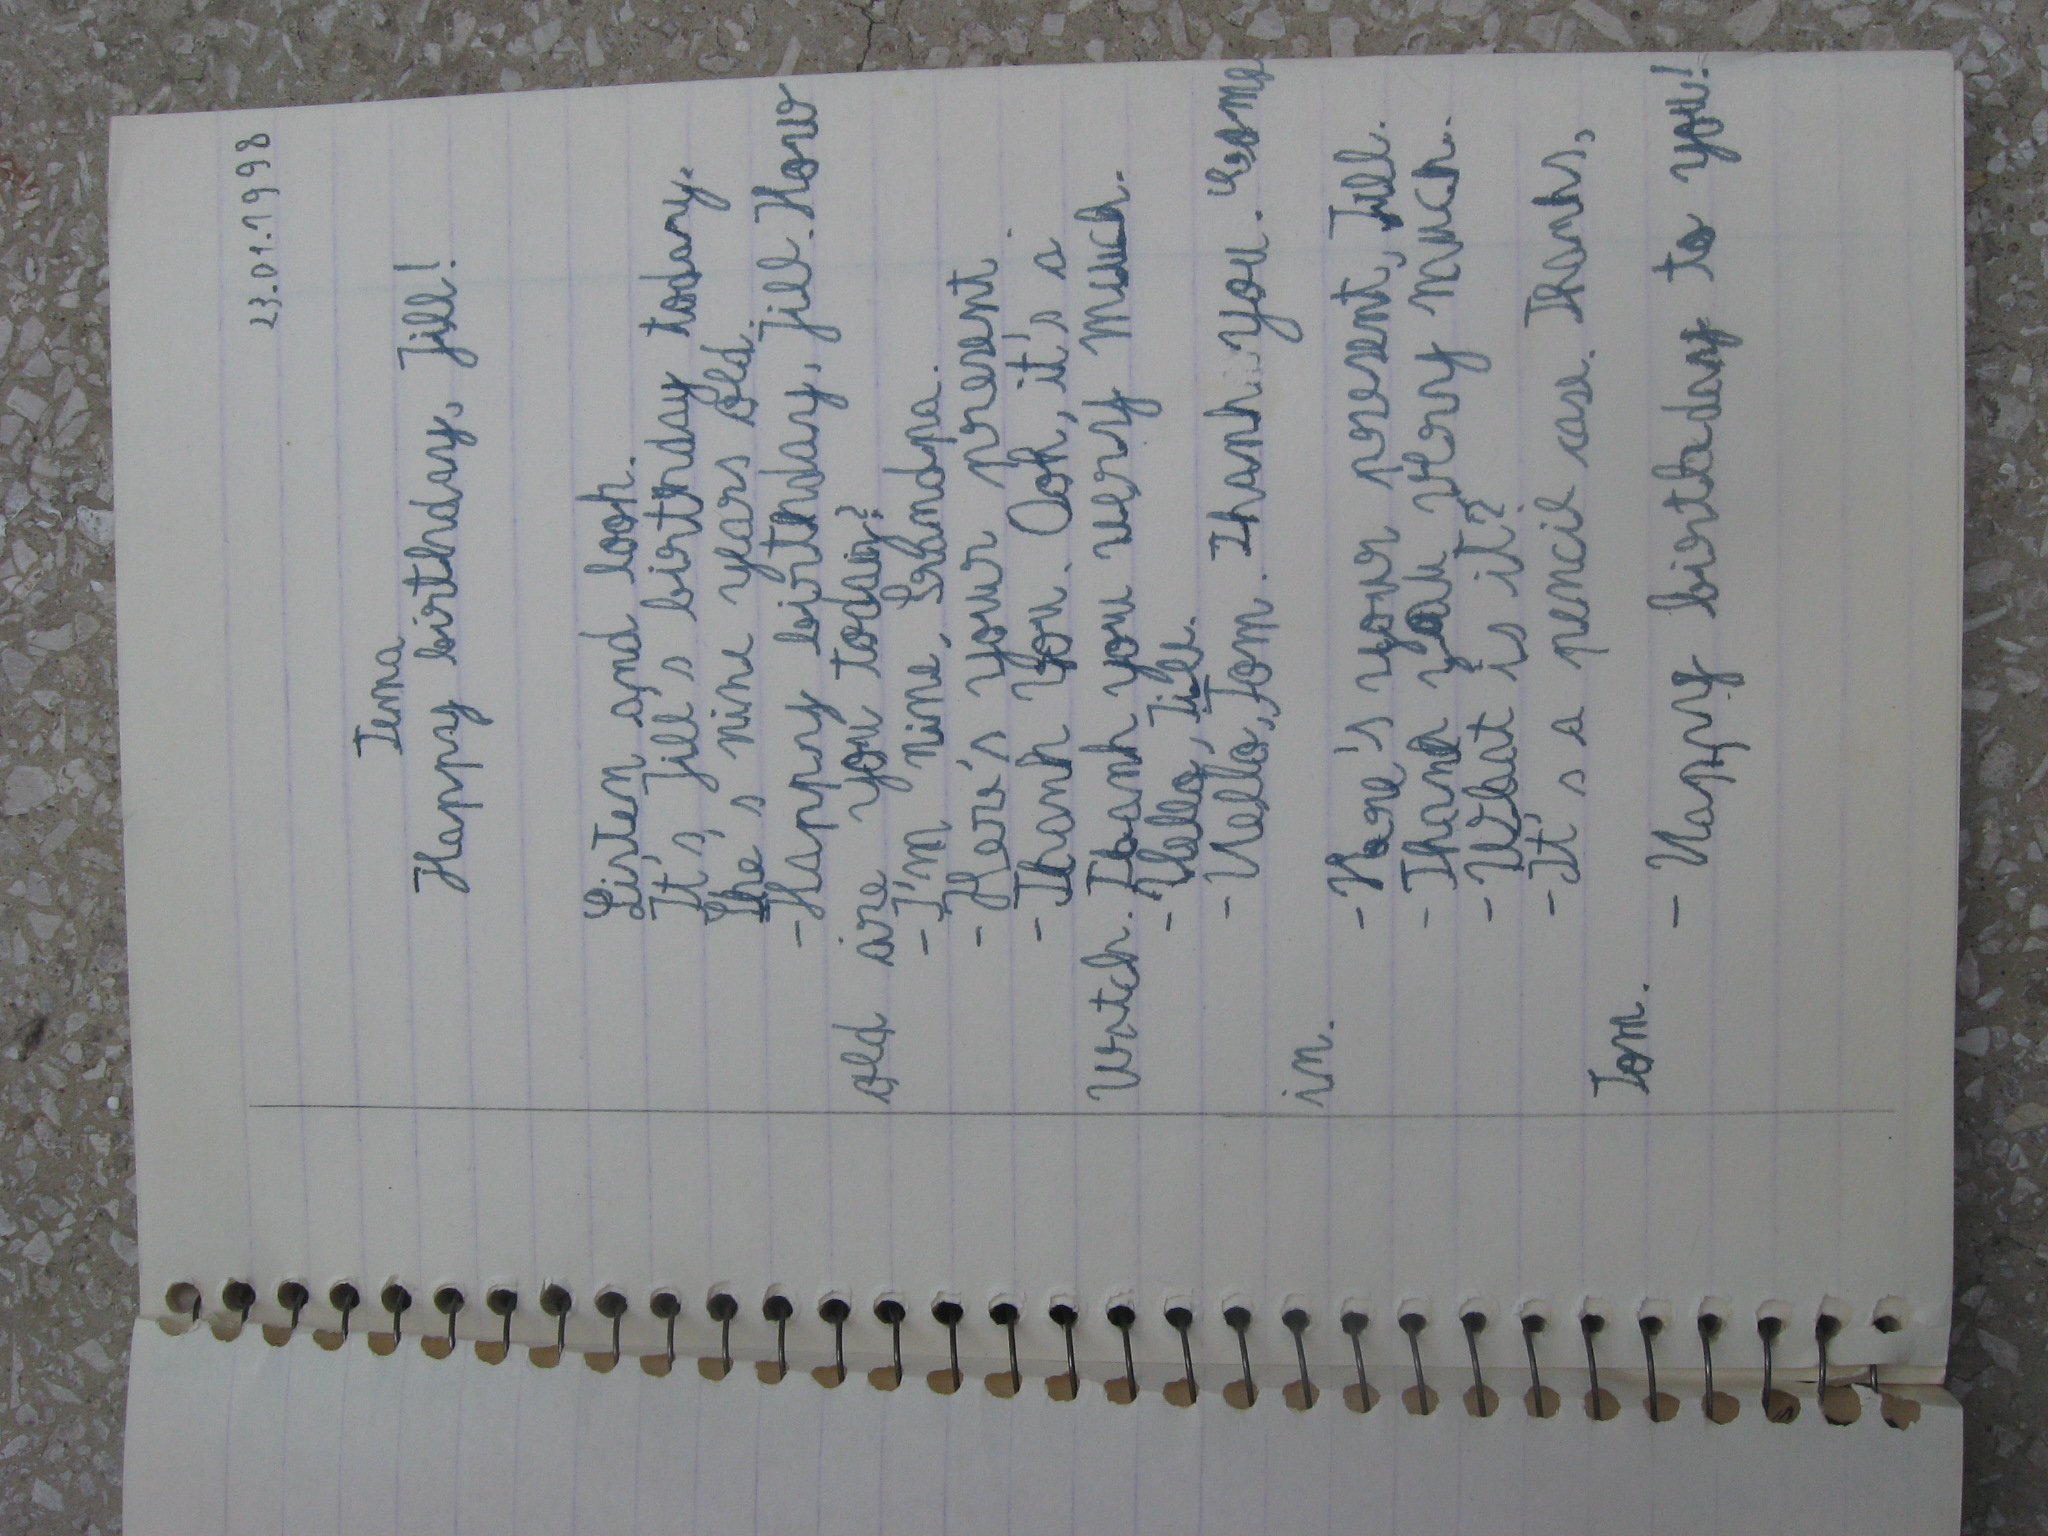 23.01.1998
Tema
Happy birthday, Jill!
Listen and look.
It's Jill's birthday today.
She's nine years old.
- Happy birthday, Jill. How
old are you today?
- I'm nine, Grandpa.
- Here's your present
- Thank you. Ooh, it's a
watch. Thank you very much.
- Hello, Jill.
- Hello, Tom. Thank you. Come
in.
- Here's your present, Jill.
- Thank you very much.
- What is it?
- It's a pencil case. Thanks,
Tom.
- Happy birthday to you!